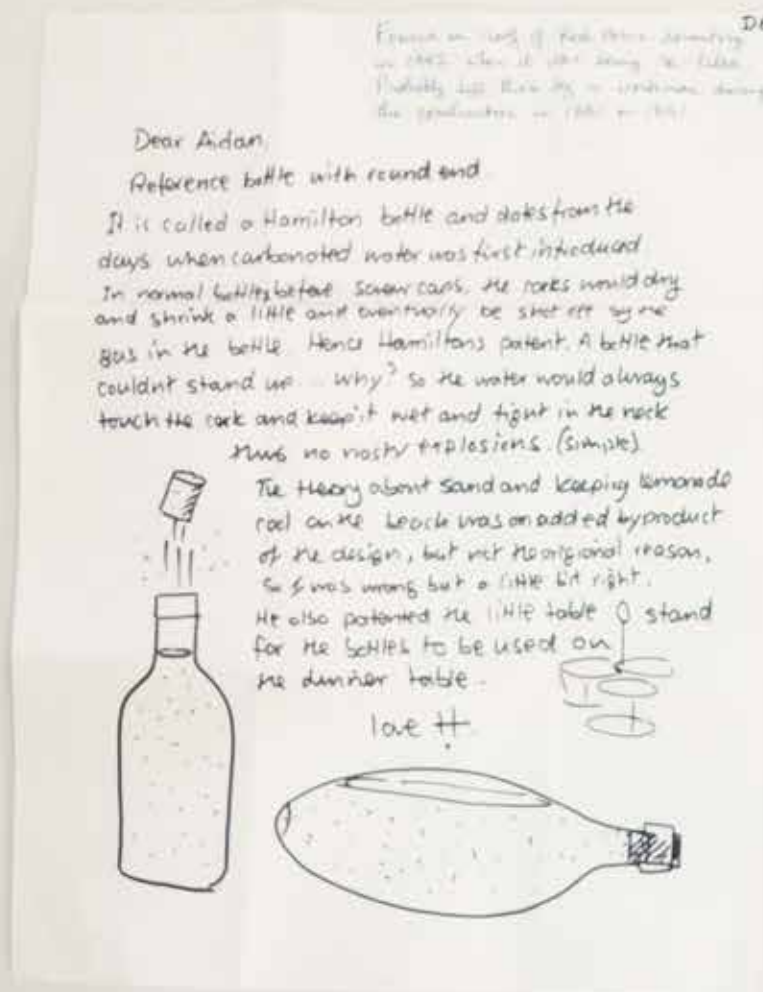 D
in 1982 when it was being
Probably
the
Dear Aidan,
Reference bottle with round end
It is called a Hamilton bottle and dates from the
days when carbonated water was first introduced
In normal bottles before screw caps, the corks would dry
and shrink a little and eventually be shot off by the
gas in the bottle. Hence Hamiltons patent. A bottle that
couldnt stand up ... why? so the water would always
touch the cork and keep it wet and tight in the neck
thus no nasty explosions. (simple)
The theory about sand and keeping lemonade
cool on the beach was an added byproduct
of the design, but not the origional reason,
so I was wrong but a little bit right.
He also patented the little table stand
for the bottles to be used on
the dinner table.
love H